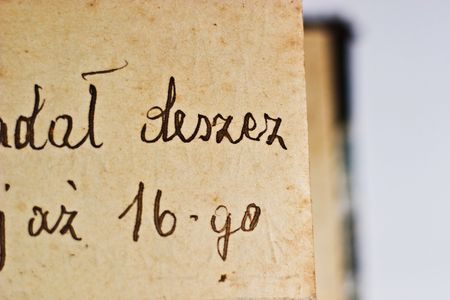 adał deszcz
j aż 16-go